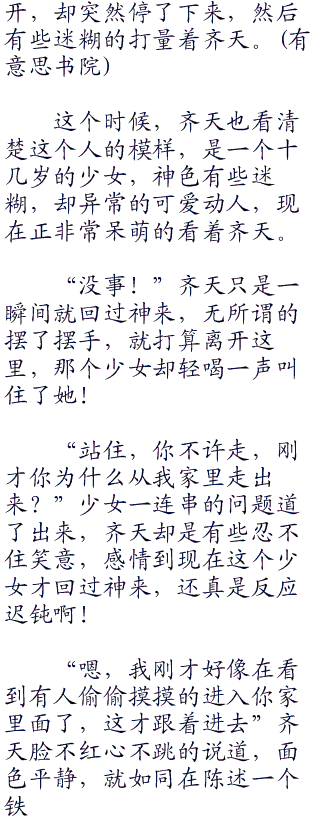 开，却突然停了下来，然后
有些迷糊的打量着齐天。(有
意思书院)
这个时候，齐天也看清
楚这个人的模样，是一个十
几岁的少女，神色有些迷
糊，却异常的可爱动人，现
在正非常呆萌的看着齐天。
“没事！”齐天只是一
瞬间就回过神来，无所谓的
摆了摆手，就打算离开这
里，那个少女却轻喝一声叫
住了她！
“站住，你不许走，刚
才你为什么从我家里走出
来？”少女一连串的问题道
了出来，齐天却是有些忍不
住笑意，感情到现在这个少
女才回过神来，还真是反应
迟钝啊！
“嗯，我刚才好像在看
到有人偷偷摸摸的进入你家
里面了，这才跟着进去”齐
天脸不红心不跳的说道，面
色平静，就如同在陈述一个
铁